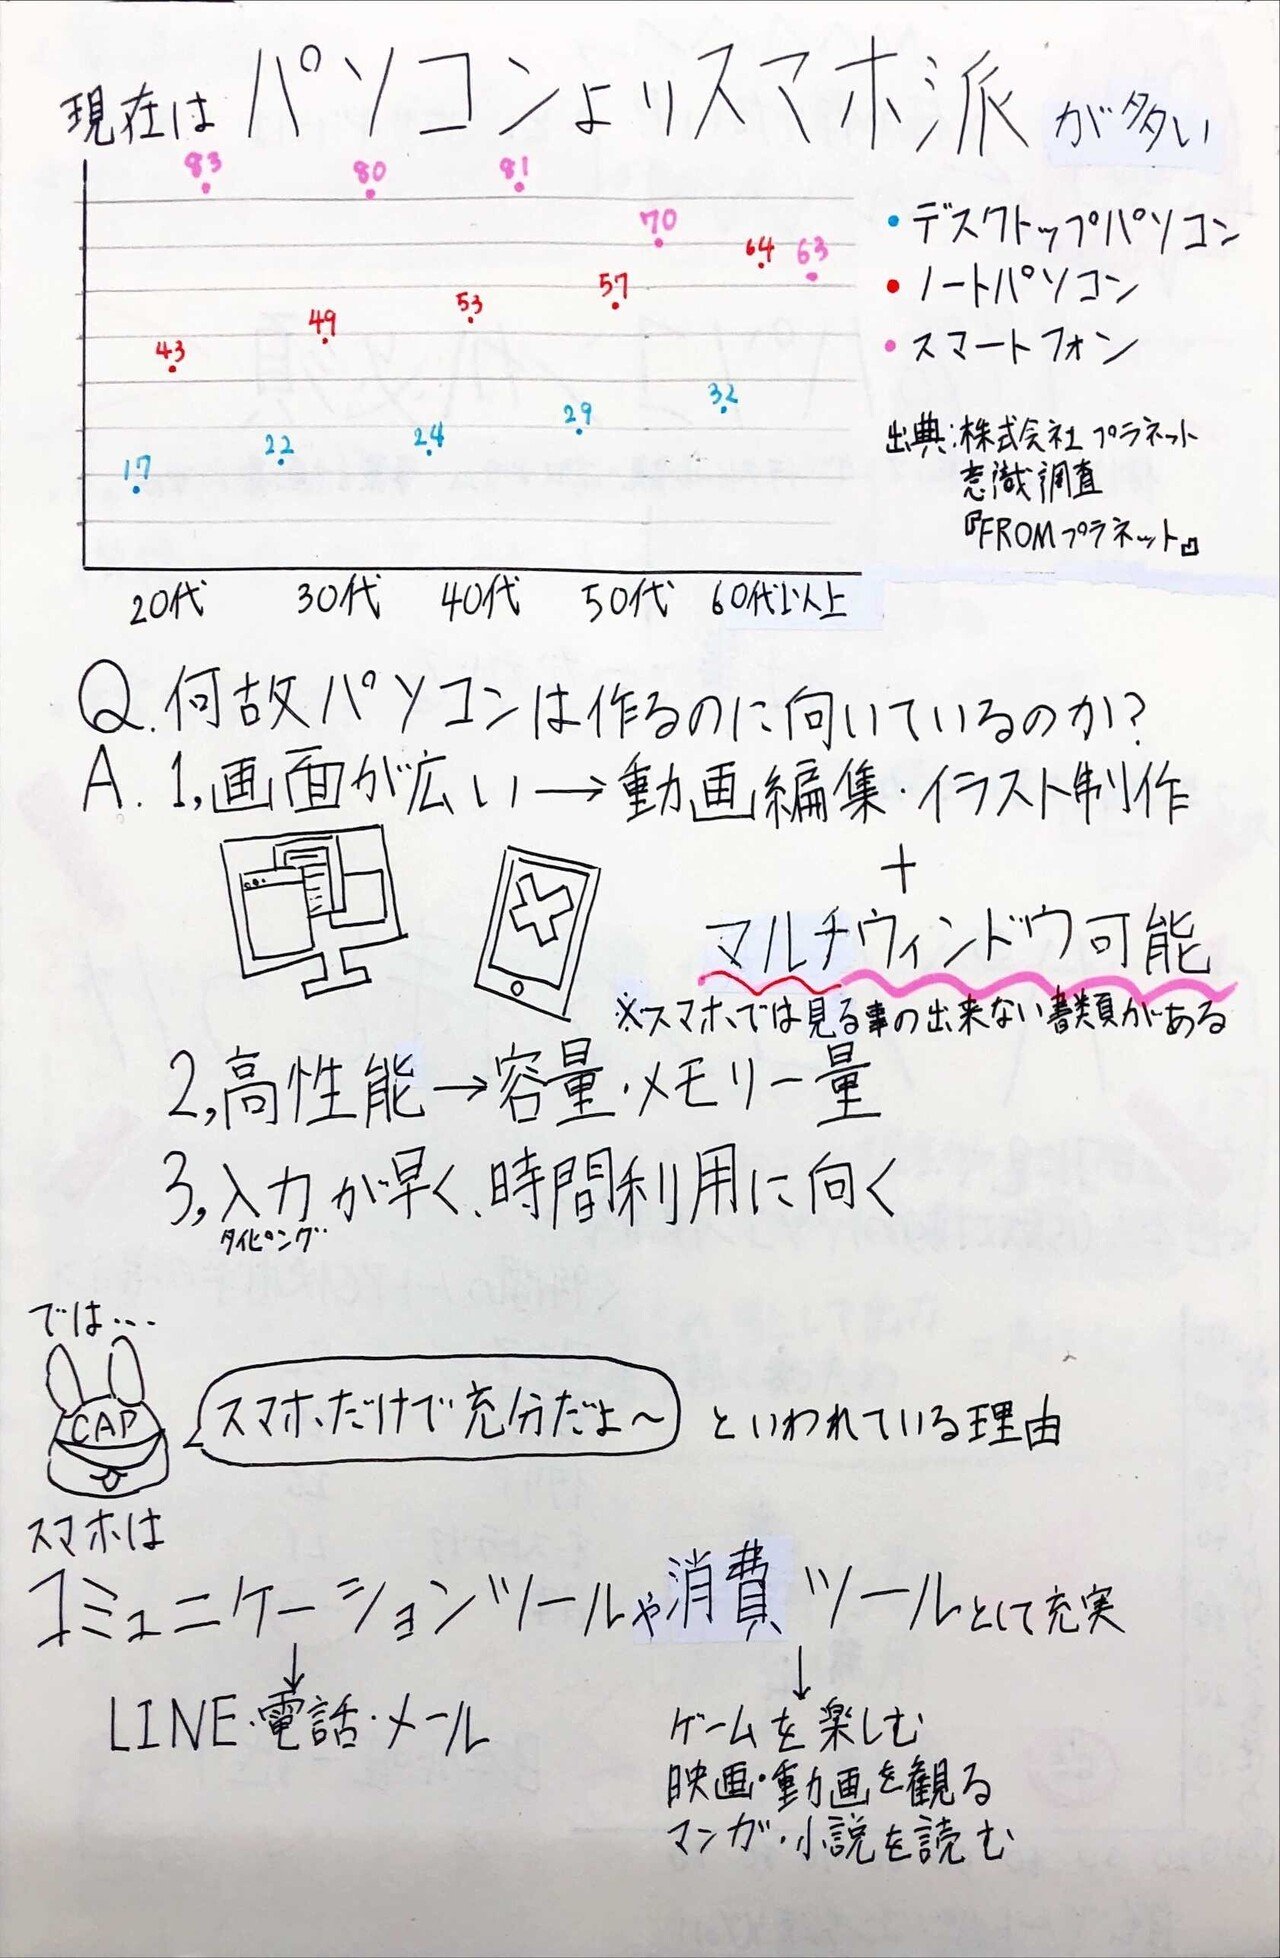 現在はパソコンよりスマホ派が多い
83 80 81
70
64 63
57
53
49
43
32
29
24
22
17
20代 30代 40代 50代 60代以上
・デスクトップパソコン
・ノートパソコン
・スマートフォン
出典:株式会社プラネット
意識調査
『FROMプラネット』
Q.何故パソコンは作るのに向いているのか?
A.1,画面が広い→動画編集・イラスト制作
+
マルチウィンドウ可能
※スマホでは見る事の出来ない書類がある
2,高性能→容量・メモリー量
3,入力が早く、時間利用に向く
タイピング
では…
CAP
スマホだけで充分だよ〜
といわれている理由
スマホは
コミュニケーションツールや消費ツールとして充実
↓ ↓
LINE・電話・メール
ゲームを楽しむ
映画・動画を観る
マンガ・小説を読む